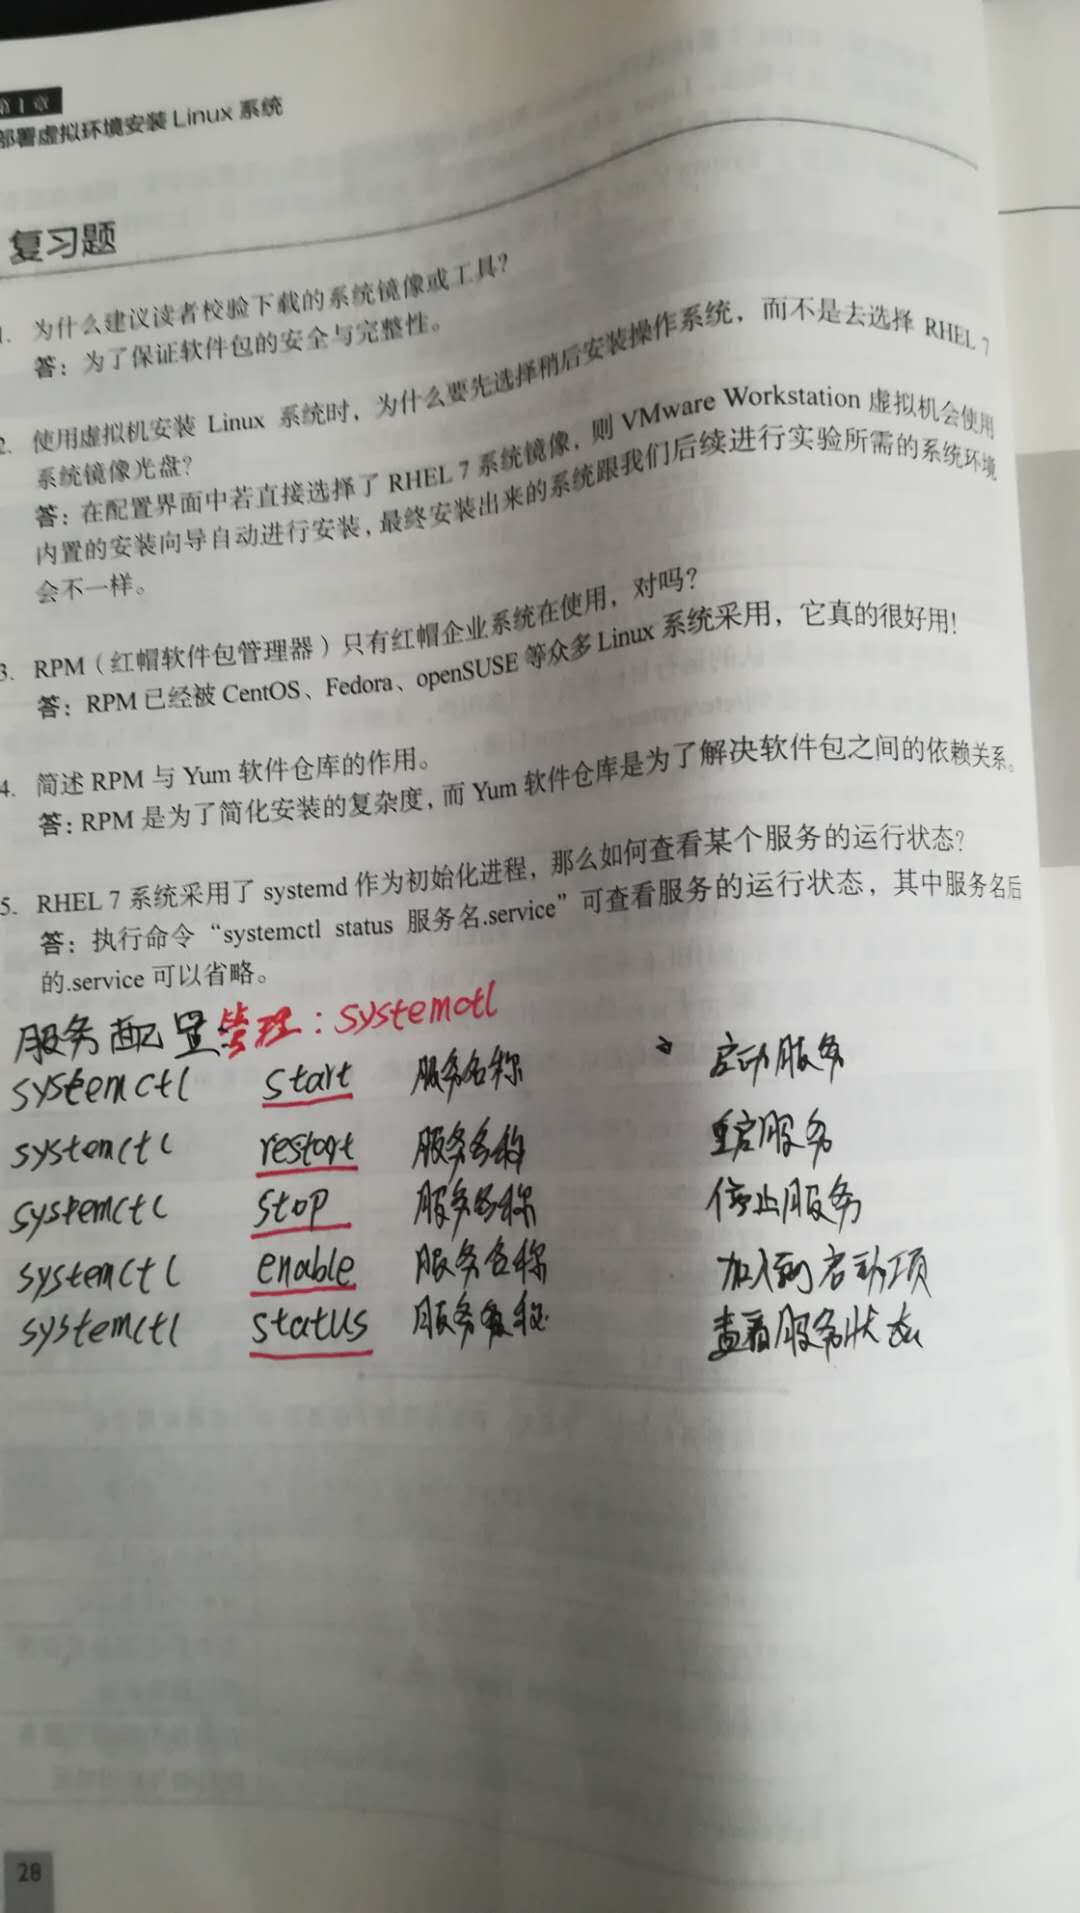 第1章
部署虚拟环境安装 Linux 系统
复习题
1. 为什么建议读者校验下载的系统镜像或工具？
答：为了保证软件包的安全与完整性。
2. 使用虚拟机安装 Linux 系统时，为什么要先选择稍后安装操作系统，而不是去选择 RHEL 7
系统镜像光盘？
答：在配置界面中若直接选择了 RHEL 7 系统镜像，则 VMware Workstation 虚拟机会使用
内置的安装向导自动进行安装，最终安装出来的系统跟我们后续进行实验所需的系统环境
会不一样。
3. RPM（红帽软件包管理器）只有红帽企业系统在使用，对吗？
答：RPM 已经被 CentOS、Fedora、openSUSE 等众多 Linux 系统采用，它真的很好用！
4. 简述 RPM 与 Yum 软件仓库的作用。
答：RPM 是为了简化安装的复杂度，而 Yum 软件仓库是为了解决软件包之间的依赖关系。
5. RHEL 7 系统采用了 systemd 作为初始化进程，那么如何查看某个服务的运行状态？
答：执行命令“systemctl status 服务名.service”可查看服务的运行状态，其中服务名后
的.service 可以省略。
服务配置管理：systemctl
systemctl start 服务名称 启动服务
systemctl restart 服务名称 重启服务
systemctl stop 服务名称 停止服务
systemctl enable 服务名称 加入到启动项
systemctl status 服务名称 查看服务状态
28